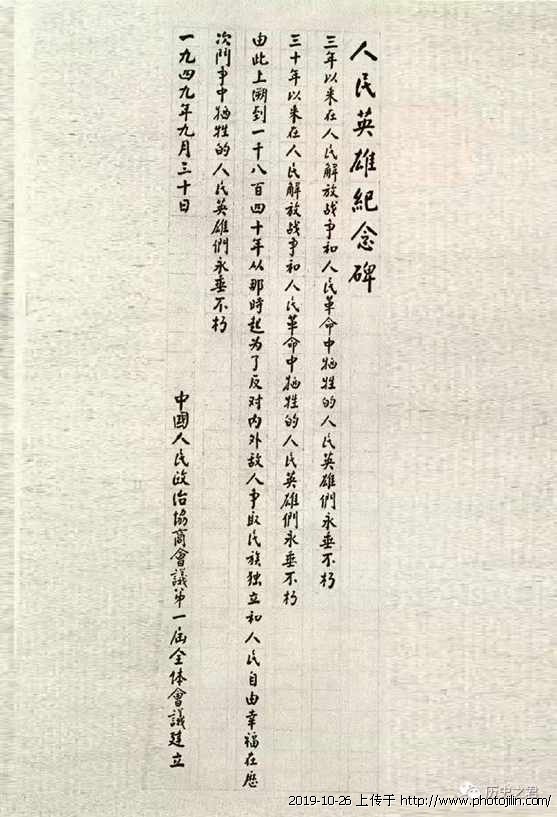 人民英雄紀念碑
三年以来在人民解放战争和人民革命中牺牲的人民英雄們永垂不朽
三十年以来在人民解放战争和人民革命中牺牲的人民英雄們永垂不朽
由此上溯到一千八百四十年从那時起为了反对内外敌人争取民族独立和人民自由幸福在歷
次鬥争中牺牲的人民英雄們永垂不朽
一九四九年九月三十日
中國人民政治協商會議第一届全体會議建立
历史之君
2019-10-26 上传于 http://www.photojilin.com/